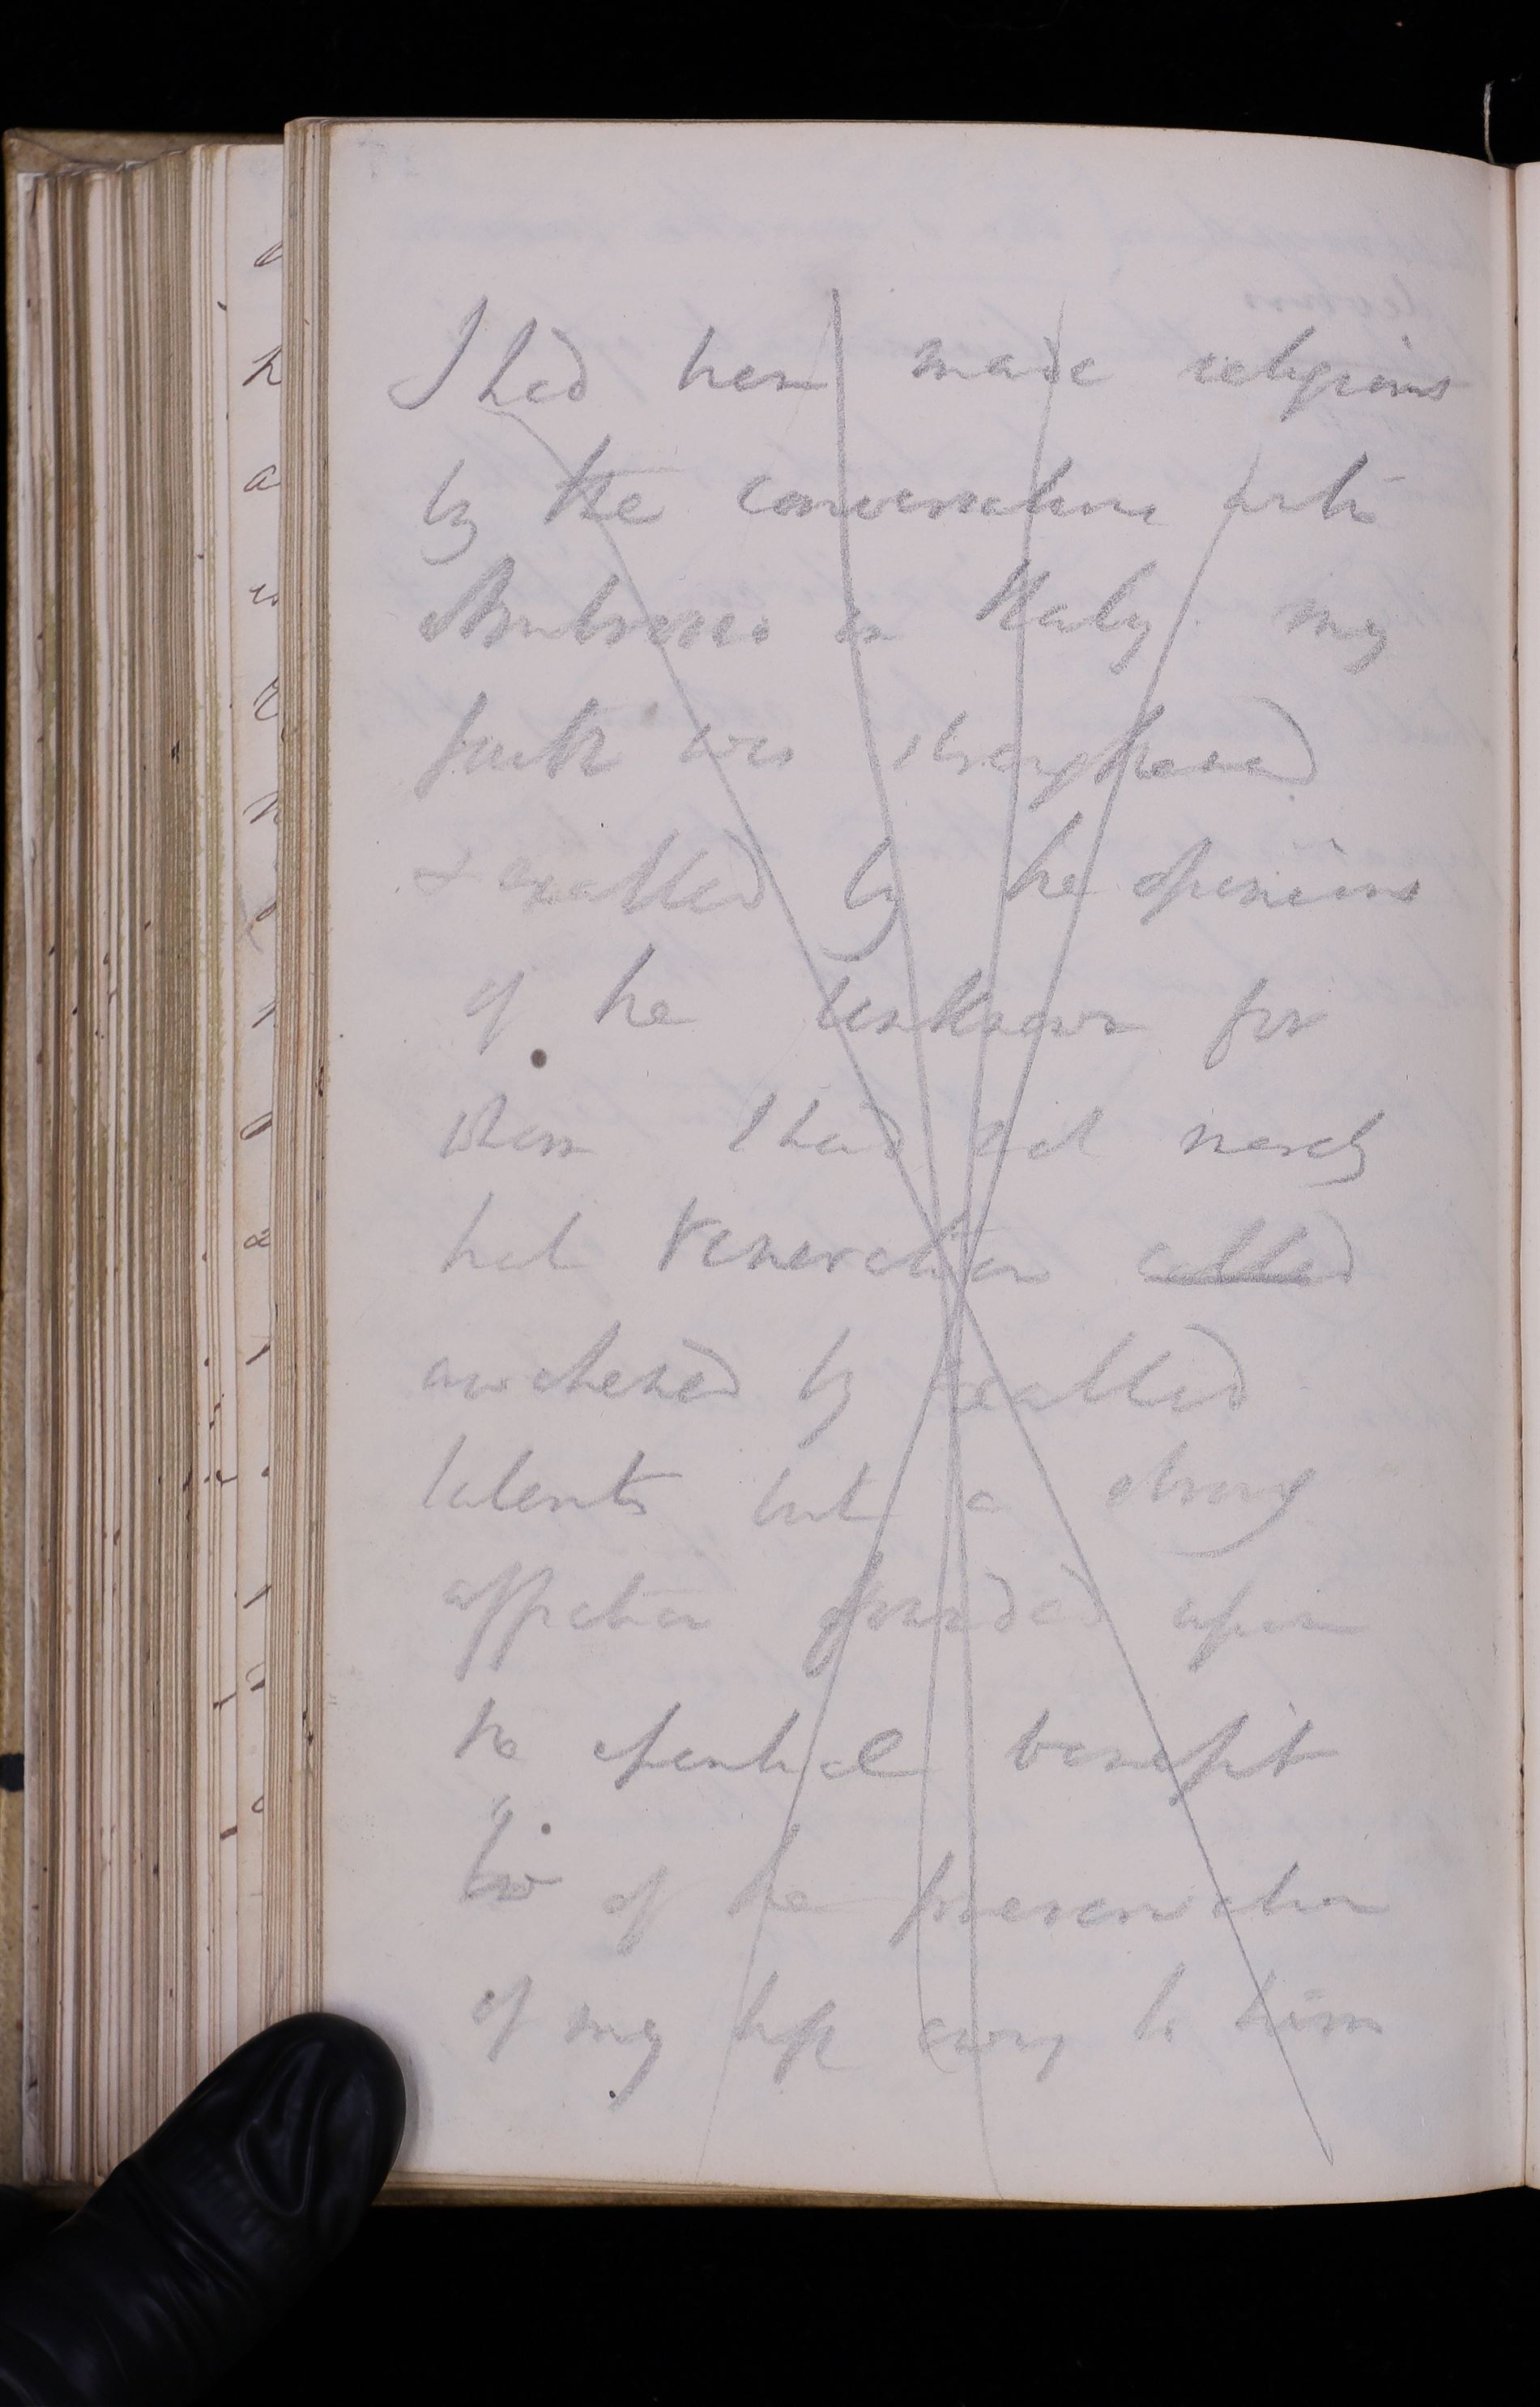 I had been made religious
by the conversations with
Ambrosio in Italy. my
faith was strengthened
& exalted by the opinions
of the Unknown for
whom I had not merely
that veneration called
awakened by exalted
talents but a strong
affection founded upon
the spiritual benefit
of the preservation
of my life owing to him